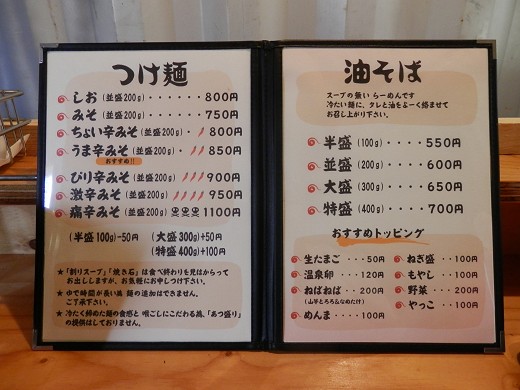 つけ麺
しお (並盛200g)・・・・・・800円
みそ (並盛200g)・・・・・・750円
ちょい辛みそ (並盛200g)・800円
うま辛みそ (並盛200g) 850円
おすすめ!!
ぴり辛みそ (並盛200g) 900円
激辛みそ (並盛200g) 950円
痛辛みそ (並盛200g) 1100円
(半盛100g)-50円 (大盛300g)+50円
(特盛400g)+100円
★「割りスープ」「焼き石」は食べ終わりを見はからって
お出ししますが、お気軽にお申しつけ下さい。
★ ゆで時間が長い為 麺の追加はできません。
ご了承下さい。
★ 冷たく締めた麺の食感と 喉ごしにこだわる為、「あつ盛り」
の提供はしておりません。
油そば
スープの無い らーめんです
冷たい麺に、タレと油をよーく絡ませて
お召し上がり下さい。
半盛 (100g)・・・・550円
並盛 (200g)・・・・600円
大盛 (300g)・・・・650円
特盛 (400g)・・・・700円
おすすめトッピング
生たまご・・・・50円
温泉卵・・・・120円
ねばねば・・200円
(山芋とろろ&なめたけ)
めんま・・・・100円
ねぎ盛・・・100円
もやし・・・100円
野菜・・・・200円
やっこ・・・100円